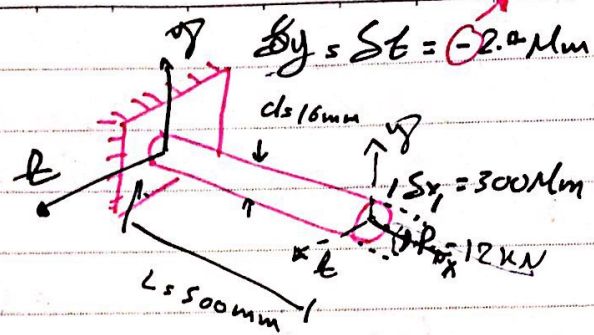 δy = δz = -2.4 μm
d = 16mm
y
y
z
δx = 300 μm
z
x
= 12 kN
L = 500mm